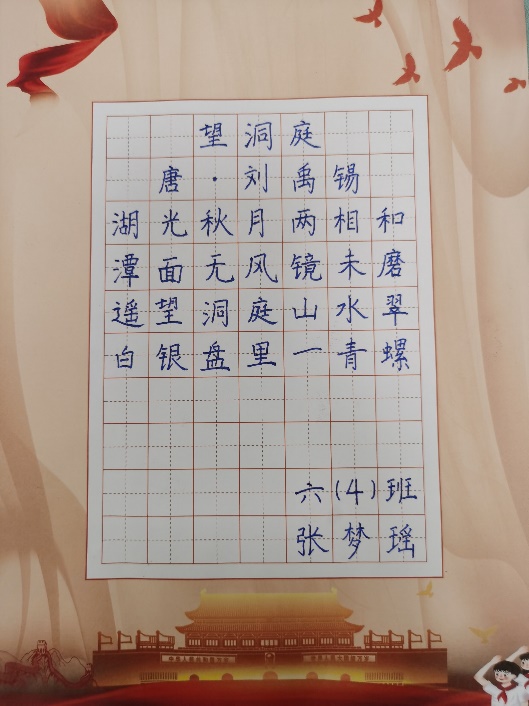 望洞庭
唐·刘禹锡
湖光秋月两相和
潭面无风镜未磨
遥望洞庭山水翠
白银盘里一青螺
六(4)班
张梦瑶